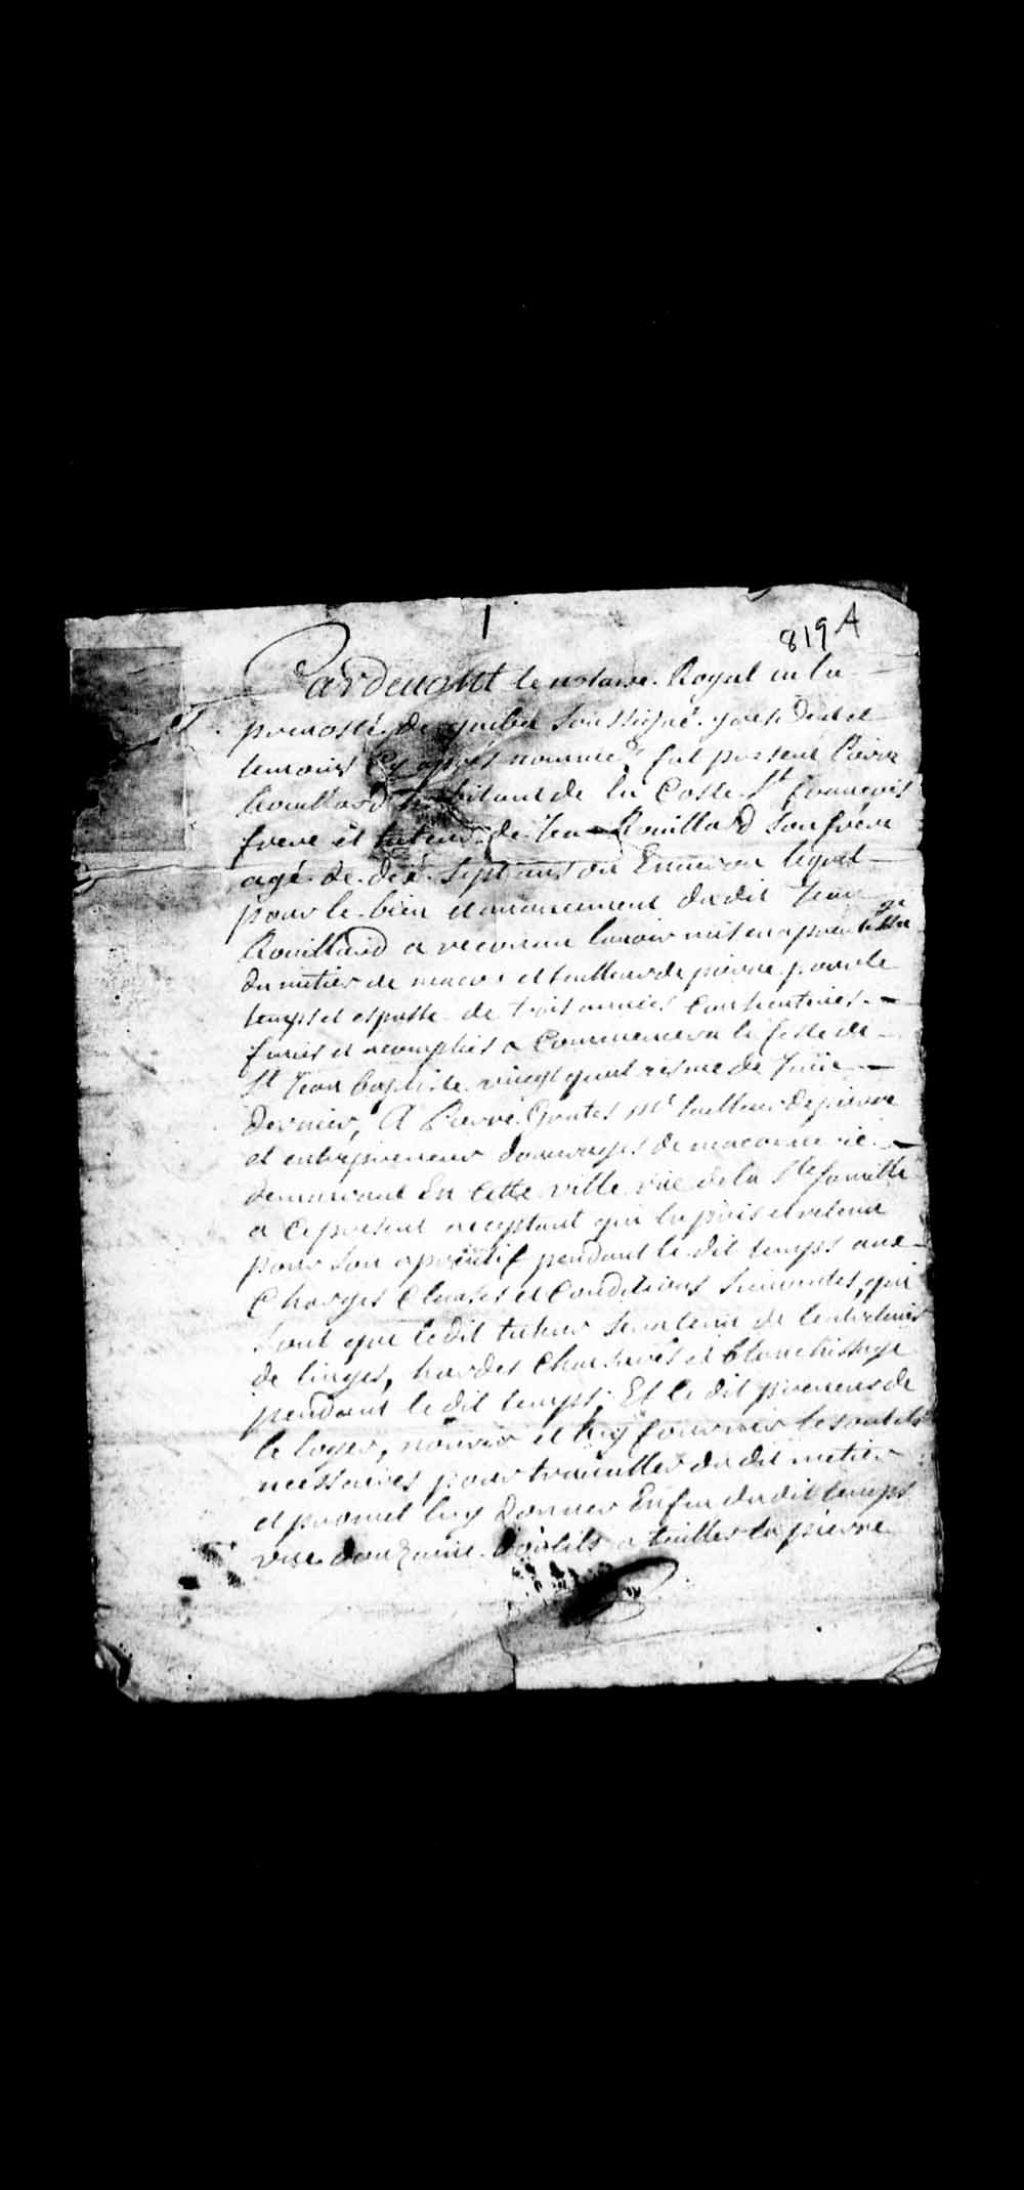 819 A
Pardevant le notaire Royal en la
prevosté de quebec soussigné y residant et
temoins cy apres nommés fut present Pierre
Rouillard habitant de la Coste St francois
frere et tuteur de Jean Rouillard son frere
agé de dix sept ans ou Environ lequel
pour le bien et avancement dudit Jean
Rouillard a reconnu lavoir mis en aprentissage
du metier de macon et tailleur de pierre pour le
temps et espasse de trois années consecutives
finies et acomplies a Commencer a la feste de
St Jean baptiste vingt quatriesme de Juin
dernier, A Pierre me tailleur de pierre
et entrepreneur douvrages de maconnerie
demeurant En Cette ville rüe de la Ste famille
a Ce present acceptant qui la pris et retenu
pour son aprentif pendant le dit temps aux
Charges Clauses et Conditions suivantes, qui
sont que ledit tuteur sera tenu de lentretenir
de linges, hardes Chaussures et blanchissage
pendant le dit temps, Et le dit preneur de
le loger, nourir et luy fournir les outils
necessaires pour travailler du dit metier
et promet luy donner En fin du dit temps
une douzaine doutils a tailler la pierre